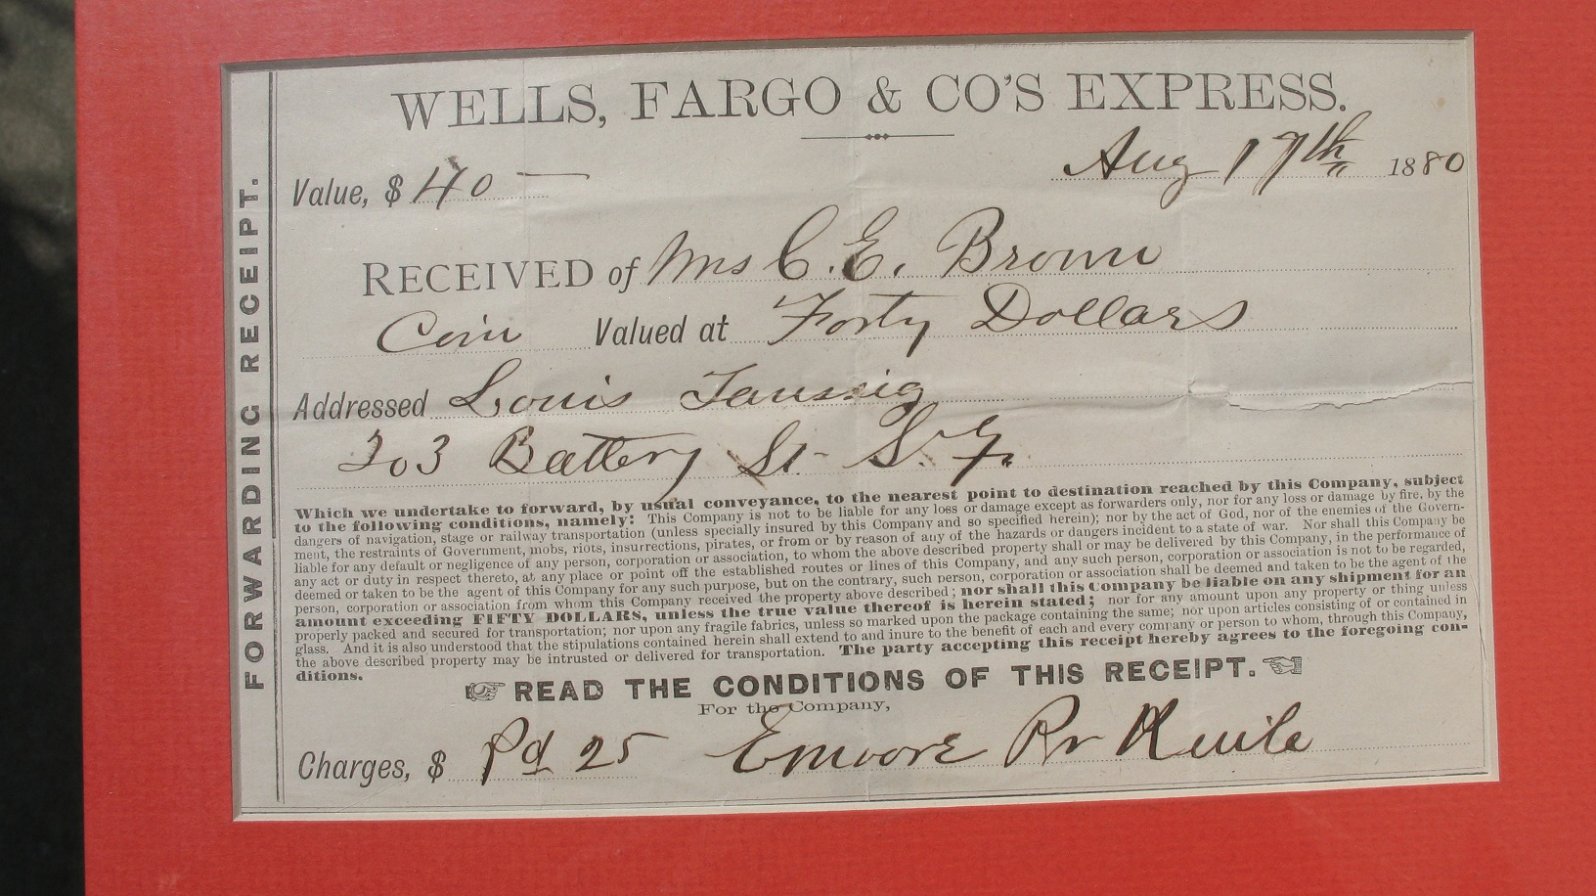 FORWARDING RECEIPT.
WELLS, FARGO & CO'S EXPRESS.
Value, $ 40 — Aug 17th 1880
RECEIVED of Mrs C. E. Brown
Coin Valued at Forty Dollars
Addressed Louis Taussig
203 Battery St - S. F.
Which we undertake to forward, by usual conveyance, to the nearest point to destination reached by this Company, subject
to the following conditions, namely: This Company is not to be liable for any loss or damage except as forwarders only, nor for any loss or damage by fire, by the
dangers of navigation, stage or railway transportation (unless specially insured by this Company and so specified herein); nor by the act of God, nor of the enemies of the Govern-
ment, the restraints of Government, mobs, riots, insurrections, pirates, or from or by reason of any of the hazards or dangers incident to a state of war. Nor shall this Company be
liable for any default or negligence of any person, corporation or association, to whom the above described property shall or may be delivered by this Company, in the performance of
any act or duty in respect thereto, at any place or point off the established routes or lines of this Company, and any such person, corporation or association is not to be regarded,
deemed or taken to be the agent of this Company for any such purpose, but on the contrary, such person, corporation or association shall be deemed and taken to be the agent of the
person, corporation or association from whom this Company received the property above described; nor shall this Company be liable on any shipment for an
amount exceeding FIFTY DOLLARS, unless the true value thereof is herein stated; nor for any amount upon any property or thing unless
properly packed and secured for transportation; nor upon any fragile fabrics, unless so marked upon the package containing the same; nor upon articles consisting of or contained in
glass. And it is also understood that the stipulations contained herein shall extend to and inure to the benefit of each and every company or person to whom, through this Company,
the above described property may be intrusted or delivered for transportation. The party accepting this receipt hereby agrees to the foregoing con-
ditions.
READ THE CONDITIONS OF THIS RECEIPT.
For the Company,
Charges, $ Pd 25